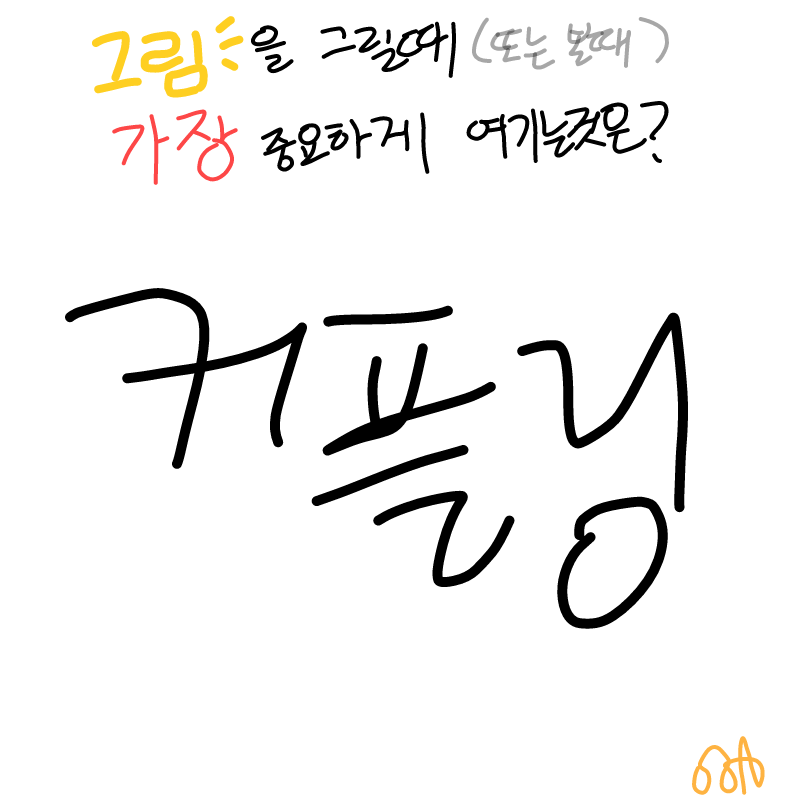 그림을 그릴때 (또는 볼때)
가장 중요하게 여기는것은?
커플링